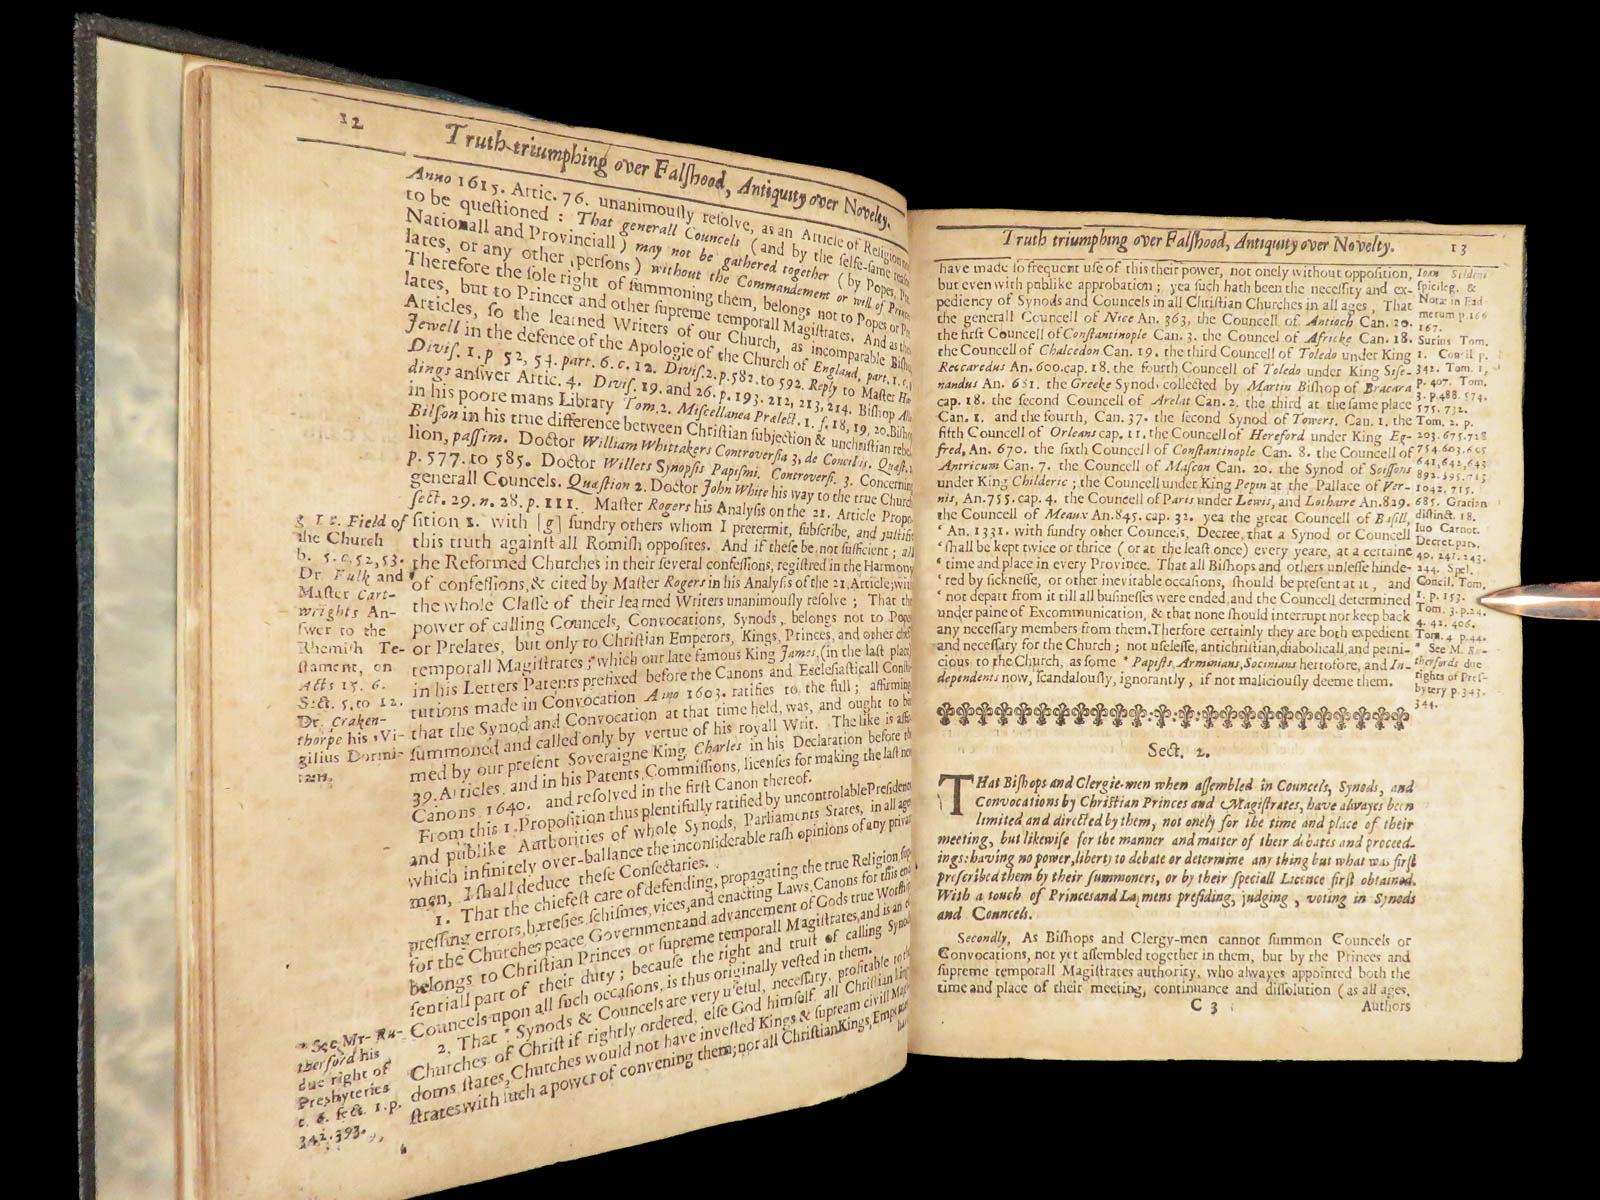 12
Truth triumphing over Falſhood, Antiquity over Novelty.
Anno 1615. Artic. 76. unanimouſly reſolve, as an Article of Religion not
to be queſtioned : That generall Councels (and by the ſelfe-ſame reaſon
Nationall and Provinciall) may not be gathered together (by Popes, Pre-
lates, or any other perſons) without the Commandement or will of Princes
Therefore the ſole right of ſummoning them, belongs not to Popes or Pre-
lates, but to Princes and other ſupreme temporall Magiſtrates. And as theſe
Articles, ſo the learned Writers of our Church, as incomparable Biſhop
Jewell in the defence of the Apologie of the Church of England, part. 1. c.
Diviſ. 1. p 52, 54. part. 6. c. 12. Diviſ. 2. p. 582. to 592. Reply to Maſter Har-
dings anſwer Artic. 4. Diviſ. 19. and 26. p. 193. 212, 213, 214. Biſhop
in his poore mans Library Tom. 2. Miſcellanea Prælect. 1. f. 18, 19, 20. Biſhop
Bilſon in his true difference between Chriſtian ſubjection & unchriſtian rebel-
lion, paſſim. Doctor William Whittakers Controverſia 3, de Conciliis. Quæſt.
p. 577. to 585. Doctor Willets Synopſis Papiſmi. Controverſ. 3. Concerning
generall Councels. Quæſtion 2. Doctor John White his way to the true Church
ſect. 29. n. 28. p. 111. Maſter Rogers his Analyſis on the 21. Article Propo-
ſition 1. with [g] ſundry others whom I pretermit, ſubſcribe, and juſtifie
this truth againſt all Romiſh oppoſites. And if theſe be not ſufficient ; all
the Reformed Churches in their ſeverall confeſſions, regiſtred in the Harmony
of confeſſions, & cited by Maſter Rogers in his Analyſis of the 21. Article; with
the whole Claſſe of their learned Writers unanimouſly reſolve ; That the
power of calling Councels, Convocations, Synods, belongs not to Popes
or Prelates, but only to Chriſtian Emperors, Kings, Princes, and other chief
temporall Magiſtrates ; which our late famous King James, (in the laſt place)
in his Letters Patents prefixed before the Canons and Eccleſiaſticall Conſti-
tutions made in Convocation Anno 1603. ratifies to the full ; affirming
that the Synod and Convocation at that time held, was, and ought to be
ſummoned and called only by vertue of his royall Writ. The like is affir-
med by our preſent Soveraigne King Charles in his Declaration before the
39. Articles, and in his Patents, Commiſſions, licenſes for making the laſt new
Canons 1640. and reſolved in the firſt Canon thereof.
From this 1. Propoſition thus plentifully ratified by uncontrolable Preſidents
and publike Authorities of whole Synods, Parliaments States, in all ages
which infinitely over-ballance the inconſiderable raſh opinions of any private
men, I ſhall deduce theſe Conſectaries.
1. That the chiefeſt care of defending, propagating the true Religion, ſup-
preſſing errors, hæreſies, ſchiſmes, vices, and enacting Laws, Canons for this end
for the Churches peace, Government and advancement of Gods true Worſhip
belongs to Chriſtian Princes or ſupreme temporall Magiſtrates, and is an eſ-
ſentiall part of their duty ; becauſe the right and truſt of calling Synods
Councels upon all ſuch occaſions, is thus originally veſted in them.
2. That * Synods & Councels are very uſefull, neceſſary, profitable to the
Churches of Chriſt if rightly ordered, elſe God himſelf, all Chriſtian king-
doms ſtates, Churches would not have inveſted Kings & ſupream civill Magi-
ſtrates with ſuch a power of convening them; nor all Chriſtian Kings, Emperours
have
g I e. Field of
the Church
b. 5. c. 52, 53.
Dr. Fulk and
Maſter Cart-
wrights An-
ſwer to the
Rhemiſh Te-
ſtament, on
Acts 15. 6.
Sect. 5. to 12.
Dr. Craken-
thorpe his Vi-
gilius Dormi-
tans,
* See Mr. Ru-
therford his
due right of
Presbyteries
c. 6. ſect. 1. p.
342. 393.
Truth triumphing over Falſhood, Antiquity over Novelty. 13
have made ſo frequent uſe of this their power, not onely without oppoſition,
but even with publike approbation ; yea ſuch hath been the neceſſity and ex-
pediency of Synods and Councels in all Chriſtian Churches in all ages, That
the generall Councell of Nice An. 363, the Councell of Antioch Can. 20.
the firſt Councell of Conſtantinople Can. 3. the Councel of Africke Can. 18.
the Councell of Chalcedon Can. 19. the third Councell of Toledo under King
Reccaredus An. 600. cap. 18. the fourth Councell of Toledo under King Siſe-
nandus An. 681. the Greeke Synod, collected by Martin Biſhop of Bracara
cap. 18. the ſecond Councell of Arelat Can. 2. the third at the ſame place
Can. 1. and the fourth, Can. 37. the ſecond Synod of Towers. Cau. 1. the
fifth Councell of Orleans cap. 11. the Councell of Hereford under King Eg-
fred, An. 670. the ſixth Councell of Conſtantinople Can. 8. the Councell of
Antricum Can. 7. the Councell of Maſcon Can. 20. the Synod of Soiſſons
under King Childeric ; the Councell under King Pepin at the Pallace of Ver-
nis, An. 755. cap. 4. the Councell of Paris under Lewis, and Lothare An. 829.
the Councell of Meaux An. 845. cap. 32. yea the great Councell of Baſill,
‘ An. 1331. with ſundry other Councels, Decree, that a Synod or Councell
‘ ſhall be kept twice or thrice (or at the leaſt once) every yeare, at a certaine
‘ time and place in every Province. That all Biſhops and others unleſſe hinde-
‘ red by ſickneſſe, or other inevitable occaſions, ſhould be preſent at it, and
‘ not depart from it till all buſineſſes were ended, and the Councell determined
under paine of Excommunication, & that none ſhould interrupt nor keep back
any neceſſary members from them. Therfore certainly they are both expedient
and neceſſary for the Church ; not uſeleſſe, antichriſtian, diabolicall, and perni-
cious to the Church, as ſome * Papiſts, Arminians, Socinians hertofore, and In-
dependents now, ſcandalouſly, ignorantly, if not maliciouſly deeme them.
Ioan Seldeni
ſpicileg. &
Notæ in Ead-
merum p. 166
167.
Surius Tom.
1. Concil p.
342. Tom. 1,
p. 407. Tom.
3. p. 488. 574.
575. 732.
Tom. 2. p.
203. 675. 728
754. 603. 605
641, 642, 643
892. 895. 713
1042, 715.
685. Gratian
diſtinct. 18.
Iuo Carnot.
Decret. pars.
40. 241. 243.
244. Spel.
Concil. Tom.
1. p. 153.
Tom. 3. p. 24.
4. 42. 406.
Tom. 4 p. 44.
* See M. Ru-
therfords due
rights of Preſ-
bytery p. 343.
344.
Sect. 2.
THat Biſhops and Clergie-men when aſſembled in Councels, Synods, and
Convocations by Chriſtian Princes and Magiſtrates, have alwayes been
limited and directed by them, not onely for the time and place of their
meeting, but likewiſe for the manner and matter of their debates and proceed-
ings: having no power, liberty to debate or determine any thing but what was firſt
preſcribed them by their ſummoners, or by their ſpeciall Licence firſt obtained.
With a touch of Princes and Laymens preſiding, judging, voting in Synods
and Councels.
Secondly, As Biſhops and Clergy-men cannot ſummon Councels or
Convocations, not yet aſſembled together in them, but by the Princes and
ſupreme temporall Magiſtrates authority, who alwayes appointed both the
time and place of their meeting, continuance and diſſolution (as all ages,
C 3 Authors